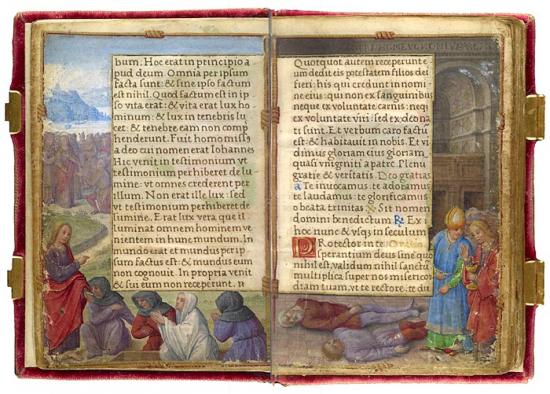 bum. Hoc erat in principio a
pud deum. Omnia per ipsum
facta sunt: & sine ipso factum
est nihil. Quod factum est in ip
so vita erat: & vita erat lux ho
minum: & lux in tenebris lu
cet: & tenebre eam non comp
henderunt. Fuit homo missus
a deo cui nomen erat Iohannes
Hic venit in testimonium vt
testimonium perhiberet de lu
mine. vt omnes crederent per
illum. Non erat ille lux. sed
vt testimonium perhiberet de
lumine. Erat lux vera que il
luminat omnem hominem ve
nientem in hunc mundum. In
mundo erat et mundus per ip
sum factus est: & mundus eum
non cognouit. In propria venit
& sui eum non receperunt.
Quotquot autem receperunt e
um dedit eis potestatem filios dei
fieri: his qui credunt in nomi
ne eius: qui non ex sanguinibus
neque ex voluntate carnis: neq
ex voluntate viri: sed ex deo na
ti sunt. Et verbum caro factu
est: & habitauit in nobis. Et vi
dimus gloriam eius gloriam
quasi vnigeniti a patre. Plenu
gratie & veritatis. Deo gratias
Te inuocamus. te adoramus
te laudamus: te glorificamus
o beata trinitas. Sit nomen
domini benedictum. Ex
hoc nunc & vsqs in seculum
Protector in te
sperantium deus sine quo
nihil est validum nihil sanctu
multiplica super nos misericor
diam tuam. vt te rectore. te du